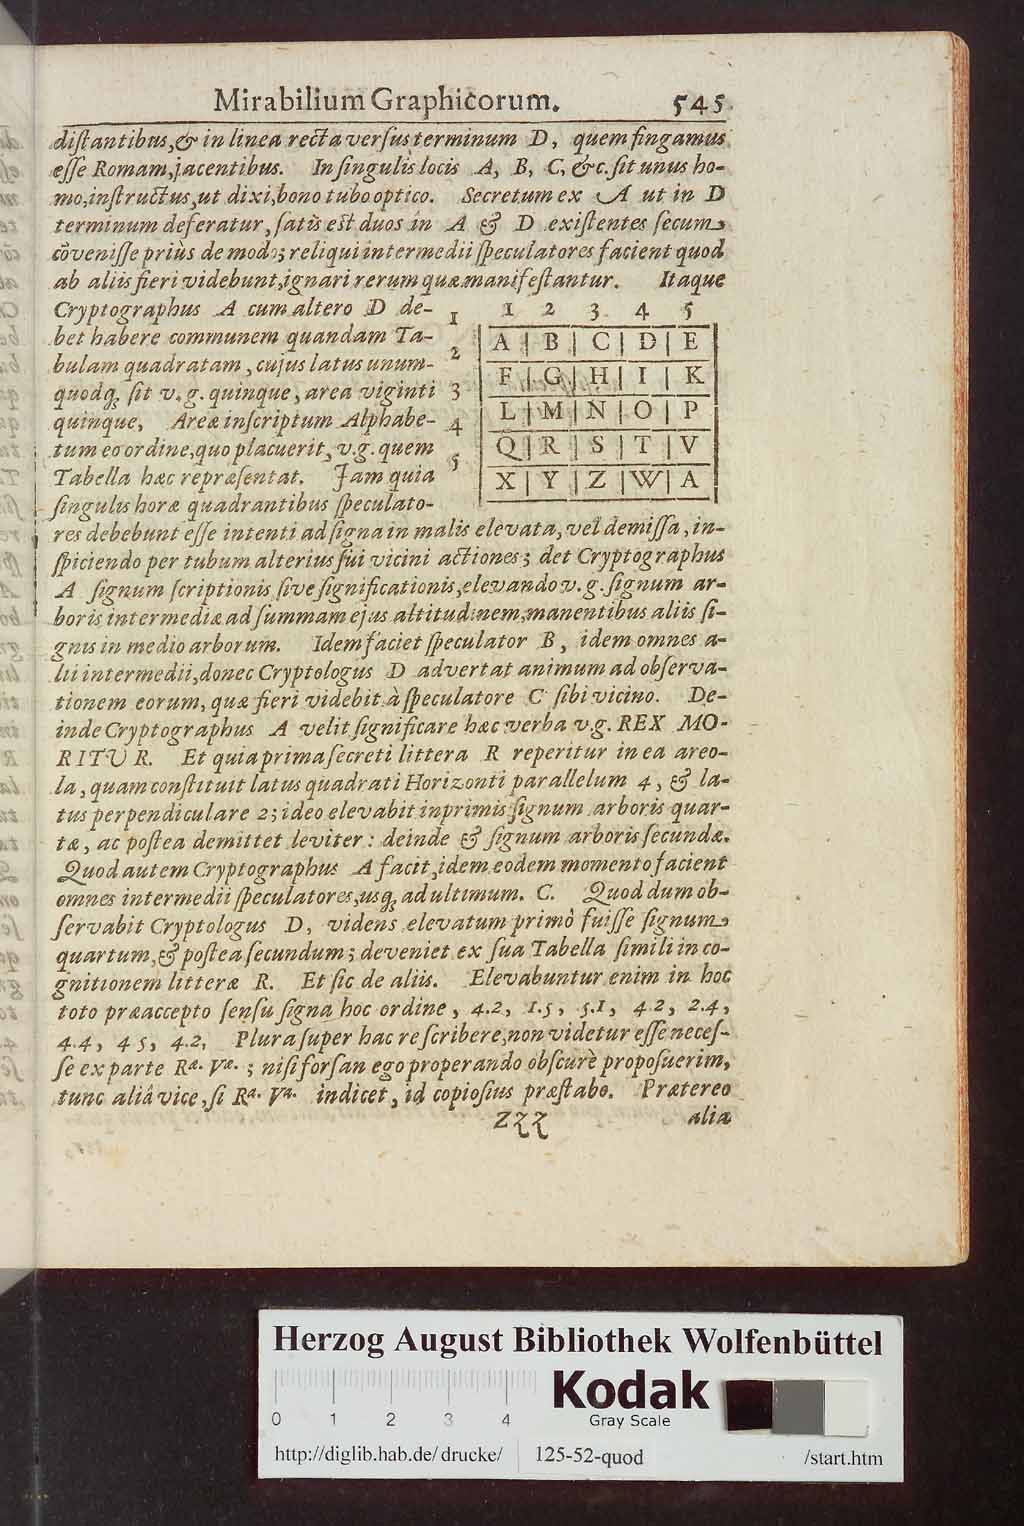 Mirabilium Graphicorum. 545
diſtantibus, & in linea recta verſus terminum D, quem fingamus
eſſe Romam, jacentibus. In ſingulis locis A, B, C, &c. ſit unus ho-
mo, inſtructus, ut dixi, bono tubo optico. Secretum ex A ut in D
terminum deferatur, ſatis eſt duos in A & D exiſtentes ſecum
cõveniſſe priùs de modo; reliqui intermedii ſpeculatores facient quod
ab aliis fieri videbunt, ignari rerum quæ manifeſtantur. Itaque
Cryptographus A cum altero D de-
bet habere communem quandam Ta-
bulam quadratam, cujus latus unum-
quodq; ſit v. g. quinque, area viginti
quinque, Areæ inſcriptum Alphabe-
tum eo ordine, quo placuerit, v. g. quem
Tabella hæc repræſentat. Jam quia
ſingulis horæ quadrantibus ſpeculato-
1 2 3 4 5
1 A | B | C | D | E
2 F | G | H | I | K
3 L | M | N | O | P
4 Q | R | S | T | V
5 X | Y | Z | W | A
res debebunt eſſe intenti ad ſigna in malis elevata, vel demiſſa, in-
ſpiciendo per tubum alterius ſui vicini actiones; det Cryptographus
A ſignum ſcriptionis ſive ſignificationis, elevando v. g. ſignum ar-
boris intermediæ ad ſummam ejus altitudinem, manentibus aliis ſi-
gnis in medio arborum. Idem faciet ſpeculator B, idem omnes a-
lii intermedii, donec Cryptologus D advertat animum ad obſerva-
tionem eorum, quæ fieri videbit à ſpeculatore C ſibi vicino. De-
inde Cryptographus A velit ſignificare hæc verba v. g. REX MO-
RITUR. Et quia prima ſecreti littera R reperitur in ea areo-
la, quam conſtituit latus quadrati Horizonti parallelum 4, & la-
tus perpendiculare 2; ideo elevabit inprimis ſignum arboris quar-
tæ, ac poſtea demittet leviter: deinde & ſignum arboris ſecundæ.
Quod autem Cryptographus A facit, idem eodem momento facient
omnes intermedii ſpeculatores, usq; ad ultimum. C. Quod dum ob-
ſervabit Cryptologus D, videns elevatum primò fuiſſe ſignum
quartum, & poſtea ſecundum; deveniet ex ſua Tabella ſimili in co-
gnitionem litteræ R. Et ſic de aliis. Elevabuntur enim in hoc
toto præaccepto ſenſu ſigna hoc ordine, 4.2, 1.5, 5.1, 4.2, 2.4,
4.4, 4 5, 4.2, Plura ſuper hac re ſcribere, non videtur eſſe neceſ-
ſe ex parte Rᵃ. Vᵃ. ; niſi forſan ego properando obſcurè propoſuerim,
tunc aliâ vice, ſi Rᵃ. Vᵃ. indicet, id copioſius præſtabo. Prætereo
Zzz alia
Herzog August Bibliothek Wolfenbüttel
0 1 2 3 4
Kodak
Gray Scale
http://diglib.hab.de/drucke/ 125-52-quod /start.htm